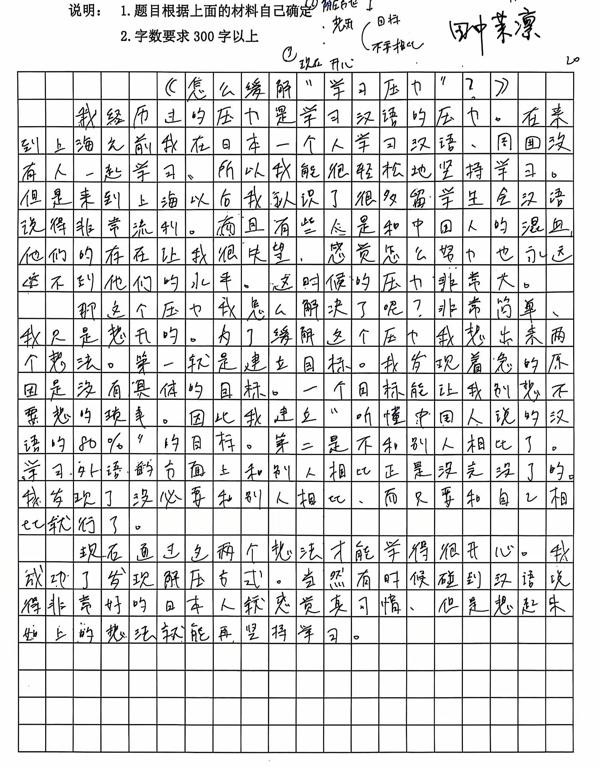 说明： 1.题目根据上面的材料自己确定
2.字数要求 300 字以上
目标
不和别人相比
现在 开心
田中菜凛
20
《怎么缓解"学习压力"？》
我经历过的压力是学习汉语的压力。在来
到上海之前我在日本一个人学习汉语、周围没
有人一起学习、所以我能很轻松地坚持学习。
但是来到上海以后我认识了很多留学生会汉语
说得非常流利。而且有些人是和中国人的混血，
他们的存在让我很失望、感觉怎么努力也永远
达不到他们的水平。这时候的压力非常大。
那这个压力我怎么解决了呢？非常简单、
我只是想开的。为了缓解这个压力我想出来两
个想法。第一就是建立目标。我发现着急的原
因是没有具体的目标。一个目标能让我别想不
要想的琐事。因此我建立"听懂中国人说的汉
语的80%"的目标。第二是不和别人相比了。
学习外语的方面上和别人相比正是没完没了的。
我发现了没必要和别人相比、而只要和自己相
比就行了。
现在通过这两个想法才能学得很开心。我
成功了发现解压方式。当然有时候碰到汉语说
得非常好的日本人就感觉真可惜、但是想起来
如上的想法就能再坚持学习。